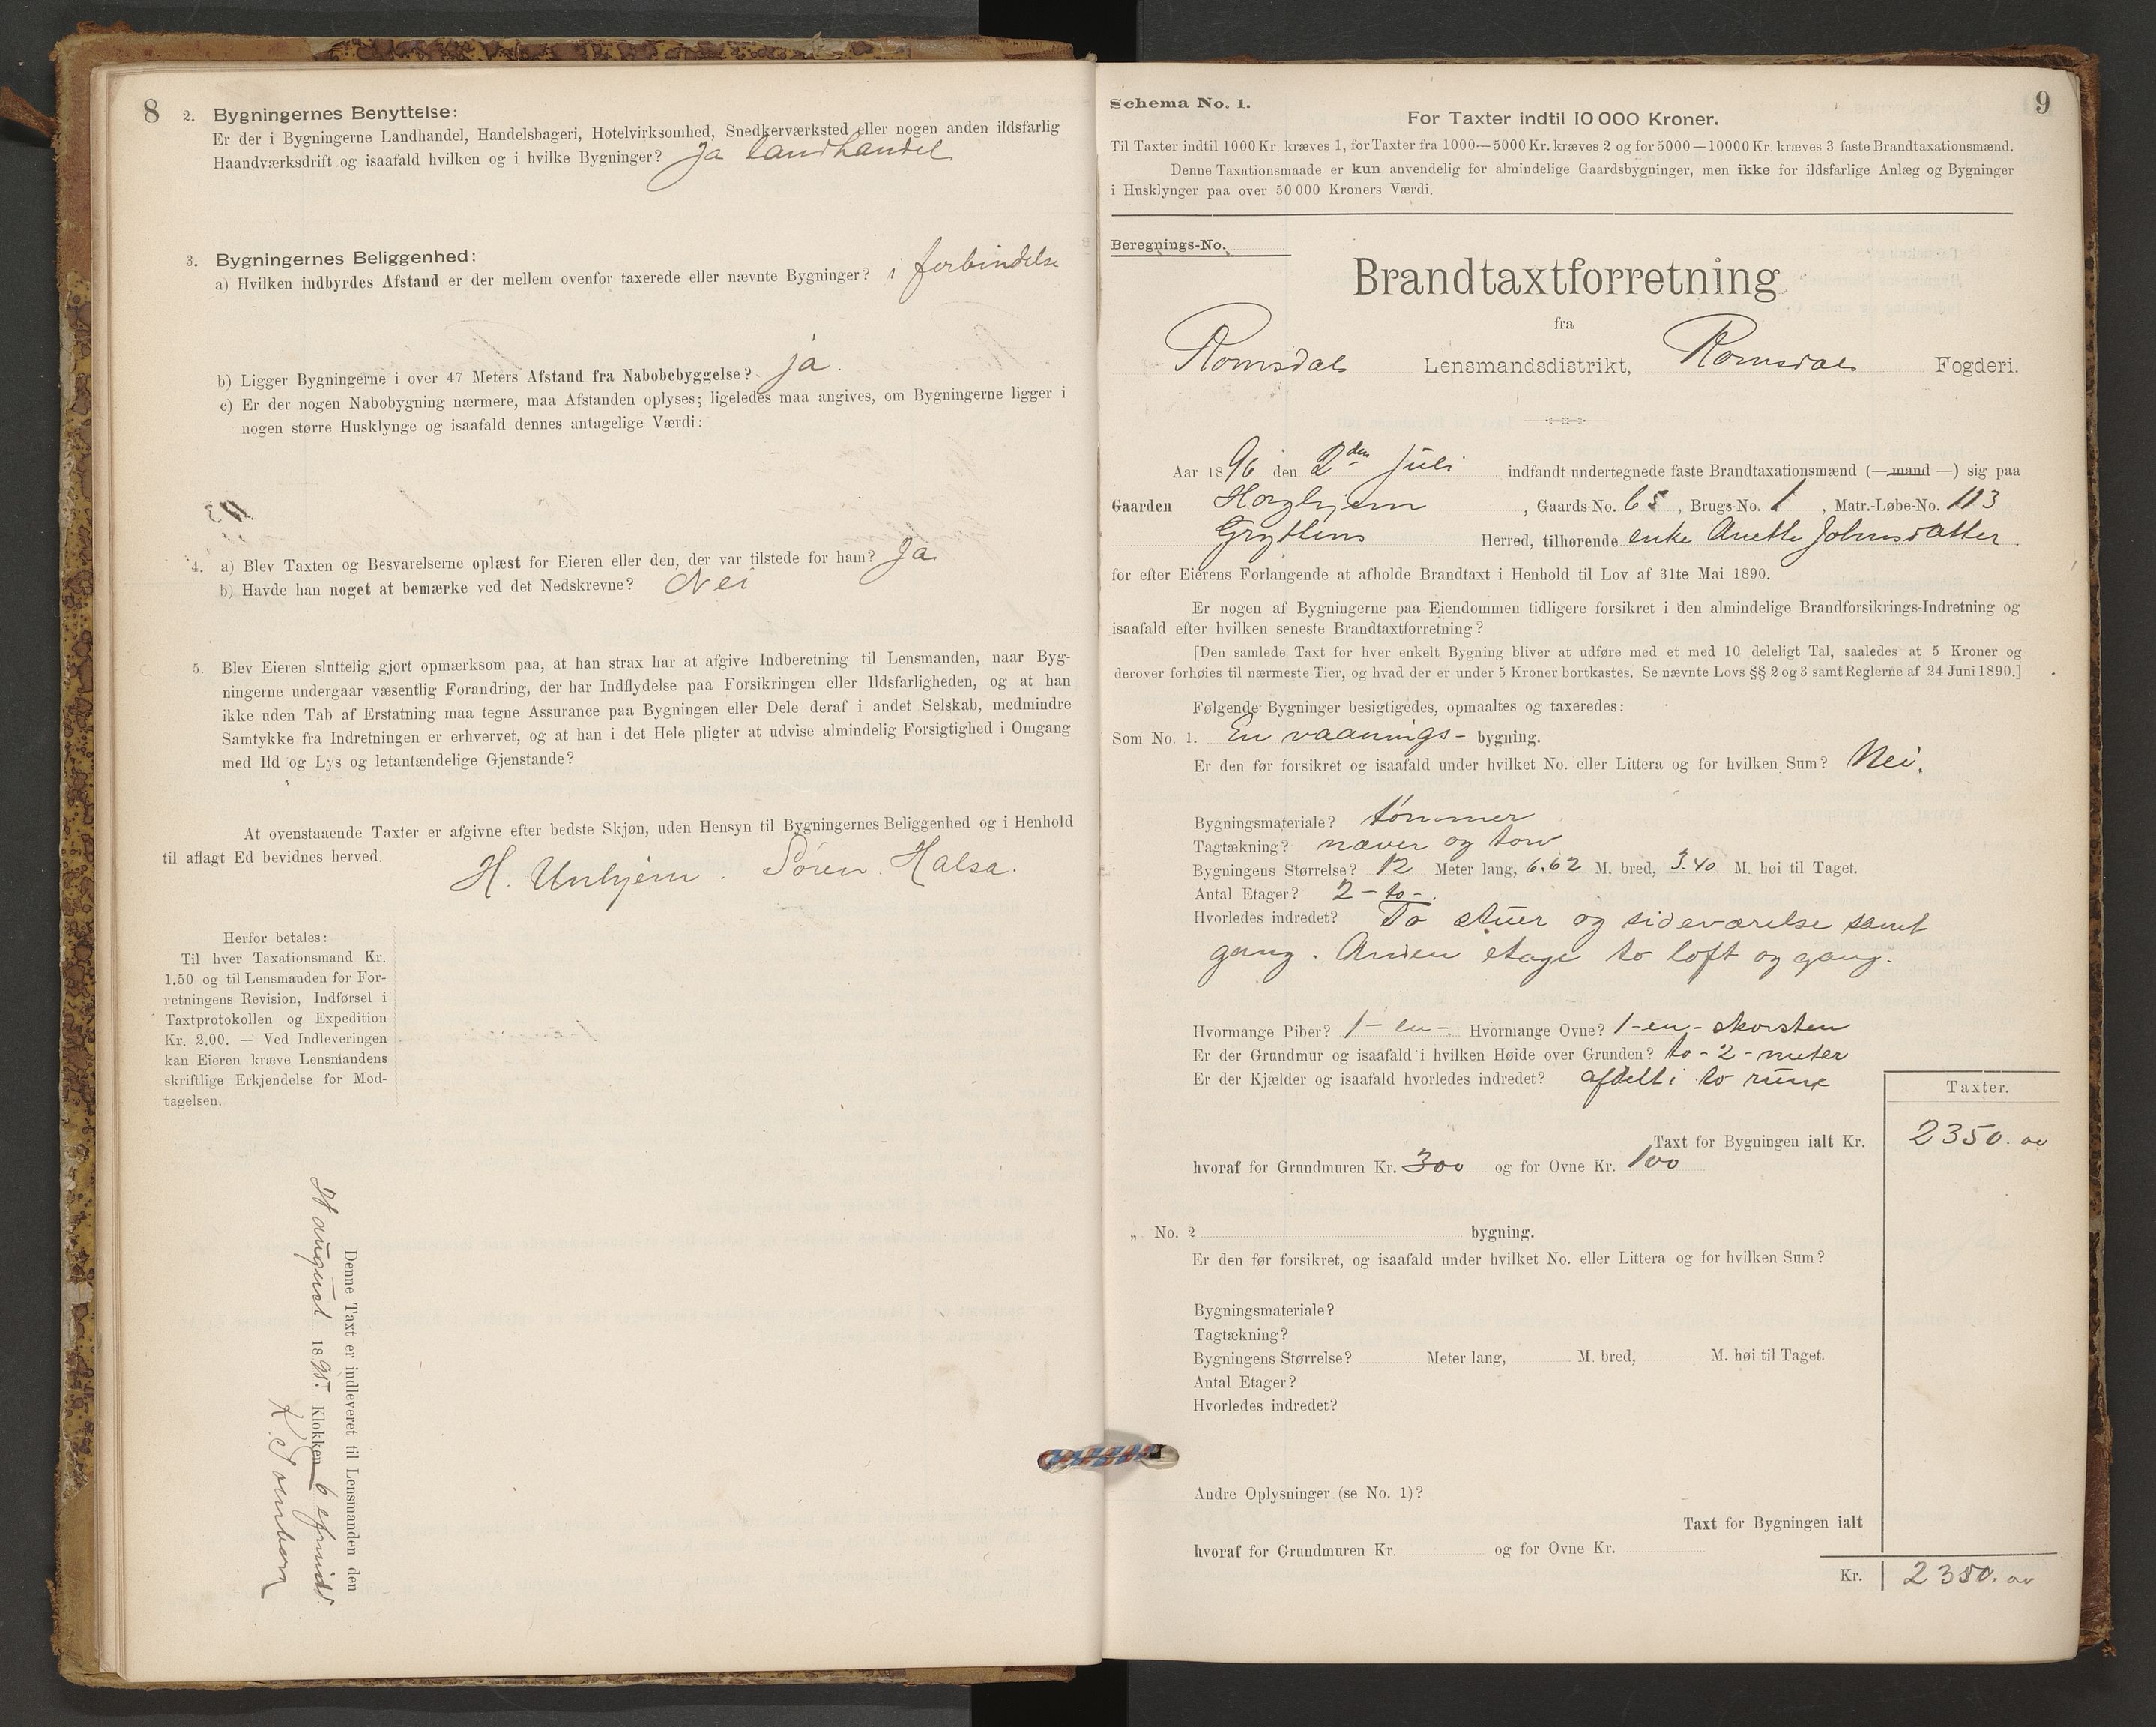 8
2. Bygningernes Benyttelse:
Er der i Bygningerne Landhandel, Handelsbageri, Hotelvirksomhed, Snedkerværksted eller nogen anden ildsfarlig
Haandværksdrift og isaafald hvilken og i hvilke Bygninger? Ja landhandel
3. Bygningernes Beliggenhed:
a) Hvilken indbyrdes Afstand er der mellem ovenfor taxerede eller nævnte Bygninger? i forbindelse
b) Ligger Bygningerne i over 47 Meters Afstand fra Nabobebyggelse? ja.
c) Er der nogen Nabobygning nærmere, maa Afstanden oplyses; ligeledes maa angives, om Bygningerne ligger i
nogen større Husklynge og isaafald dennes antagelige Værdi:
4. a) Blev Taxten og Besvarelserne oplæst for Eieren eller den, der var tilstede for ham? Ja
b) Havde han noget at bemærke ved det Nedskrevne? Nei
5. Blev Eieren sluttelig gjort opmærksom paa, at han strax har at afgive Indberetning til Lensmanden, naar Byg-
ningerne undergaar væsentlig Forandring, der har Indflydelse paa Forsikringen eller Ildsfarligheden, og at han
ikke uden Tab af Erstatning maa tegne Assurance paa Bygningen eller Dele deraf i andet Selskab, medmindre
Samtykke fra Indretningen er erhvervet, og at han i det Hele pligter at udvise almindelig Forsigtighed i Omgang
med Ild og Lys og letantændelige Gjenstande?
At ovenstaaende Taxter er afgivne efter bedste Skjøn, uden Hensyn til Bygningernes Beliggenhed og i Henhold
til aflagt Ed bevidnes herved.
H. Unhjem. Sören. Halsa.
Herfor betales:
Til hver Taxationsmand Kr.
1.50 og til Lensmanden for For-
retningens Revision, Indførsel i
Taxtprotokollen og Expedition
Kr. 2.00. — Ved Indleveringen
kan Eieren kræve Lensmandens
skriftlige Erkjendelse for Mod-
tagelsen.
Denne Taxt er indleveret til Lensmanden den
august 1895. Klokken 6 efmid.
9
Schema No. 1.
For Taxter indtil 10 000 Kroner.
Til Taxter indtil 1000 Kr. kræves 1, for Taxter fra 1000—5000 Kr. kræves 2 og for 5000—10000 Kr. kræves 3 faste Brandtaxationsmænd.
Denne Taxationsmaade er kun anvendelig for almindelige Gaardsbygninger, men ikke for ildsfarlige Anlæg og Bygninger
i Husklynger paa over 50 000 Kroners Værdi.
Beregnings-No.
Brandtaxtforretning
fra
Romsdals Lensmandsdistrikt, Romsdals Fogderi.
Aar 1896 den 2den Juli indfandt undertegnede faste Brandtaxationsmænd (—mand—) sig paa
Gaarden Horghjem, Gaards-No. 65, Brugs-No. 1, Matr.-Løbe-No. 113
Gryttens Herred, tilhørende enke Anette Johnsdatter.
for efter Eierens Forlangende at afholde Brandtaxt i Henhold til Lov af 31te Mai 1890.
Er nogen af Bygningerne paa Eiendommen tidligere forsikret i den almindelige Brandforsikrings-Indretning og
isaafald efter hvilken seneste Brandtaxtforretning?
[Den samlede Taxt for hver enkelt Bygning bliver at udføre med et med 10 deleligt Tal, saaledes at 5 Kroner og
derover forhøies til nærmeste Tier, og hvad der er under 5 Kroner bortkastes. Se nævnte Lovs §§ 2 og 3 samt Reglerne af 24 Juni 1890.]
Følgende Bygninger besigtigedes, opmaaltes og taxeredes:
Som No. 1. En vaanings- bygning.
Er den før forsikret og isaafald under hvilket No. eller Littera og for hvilken Sum? Nei.
Bygningsmateriale? tömmer
Tagtækning? næver og torv
Bygningens Størrelse? 12 Meter lang, 6.62 M. bred, 3.40 M. høi til Taget.
Antal Etager? 2 - to -.
Hvorledes indredet? To stuer og sideværelse samt
gang. Anden etage to loft og gang.
Hvormange Piber? 1 - en -. Hvormange Ovne? 1 - en - skorsten
Er der Grundmur og isaafald i hvilken Høide over Grunden? to - 2 - meter
Er der Kjælder og isaafald hvorledes indredet? afdelt i to rum
Taxter.
Taxt for Bygningen ialt Kr. 2350. oo
hvoraf for Grundmuren Kr. 300 og for Ovne Kr. 100
„ No. 2 bygning.
Er den før forsikret, og isaafald under hvilket No. eller Littera og for hvilken Sum?
Bygningsmateriale?
Tagtækning?
Bygningens Størrelse? Meter lang, M. bred, M. høi til Taget.
Antal Etager?
Hvorledes indredet?
Andre Oplysninger (se No. 1)?
Taxt for Bygningen ialt
hvoraf for Grundmuren Kr. og for Ovne Kr.
Kr. 2350. oo